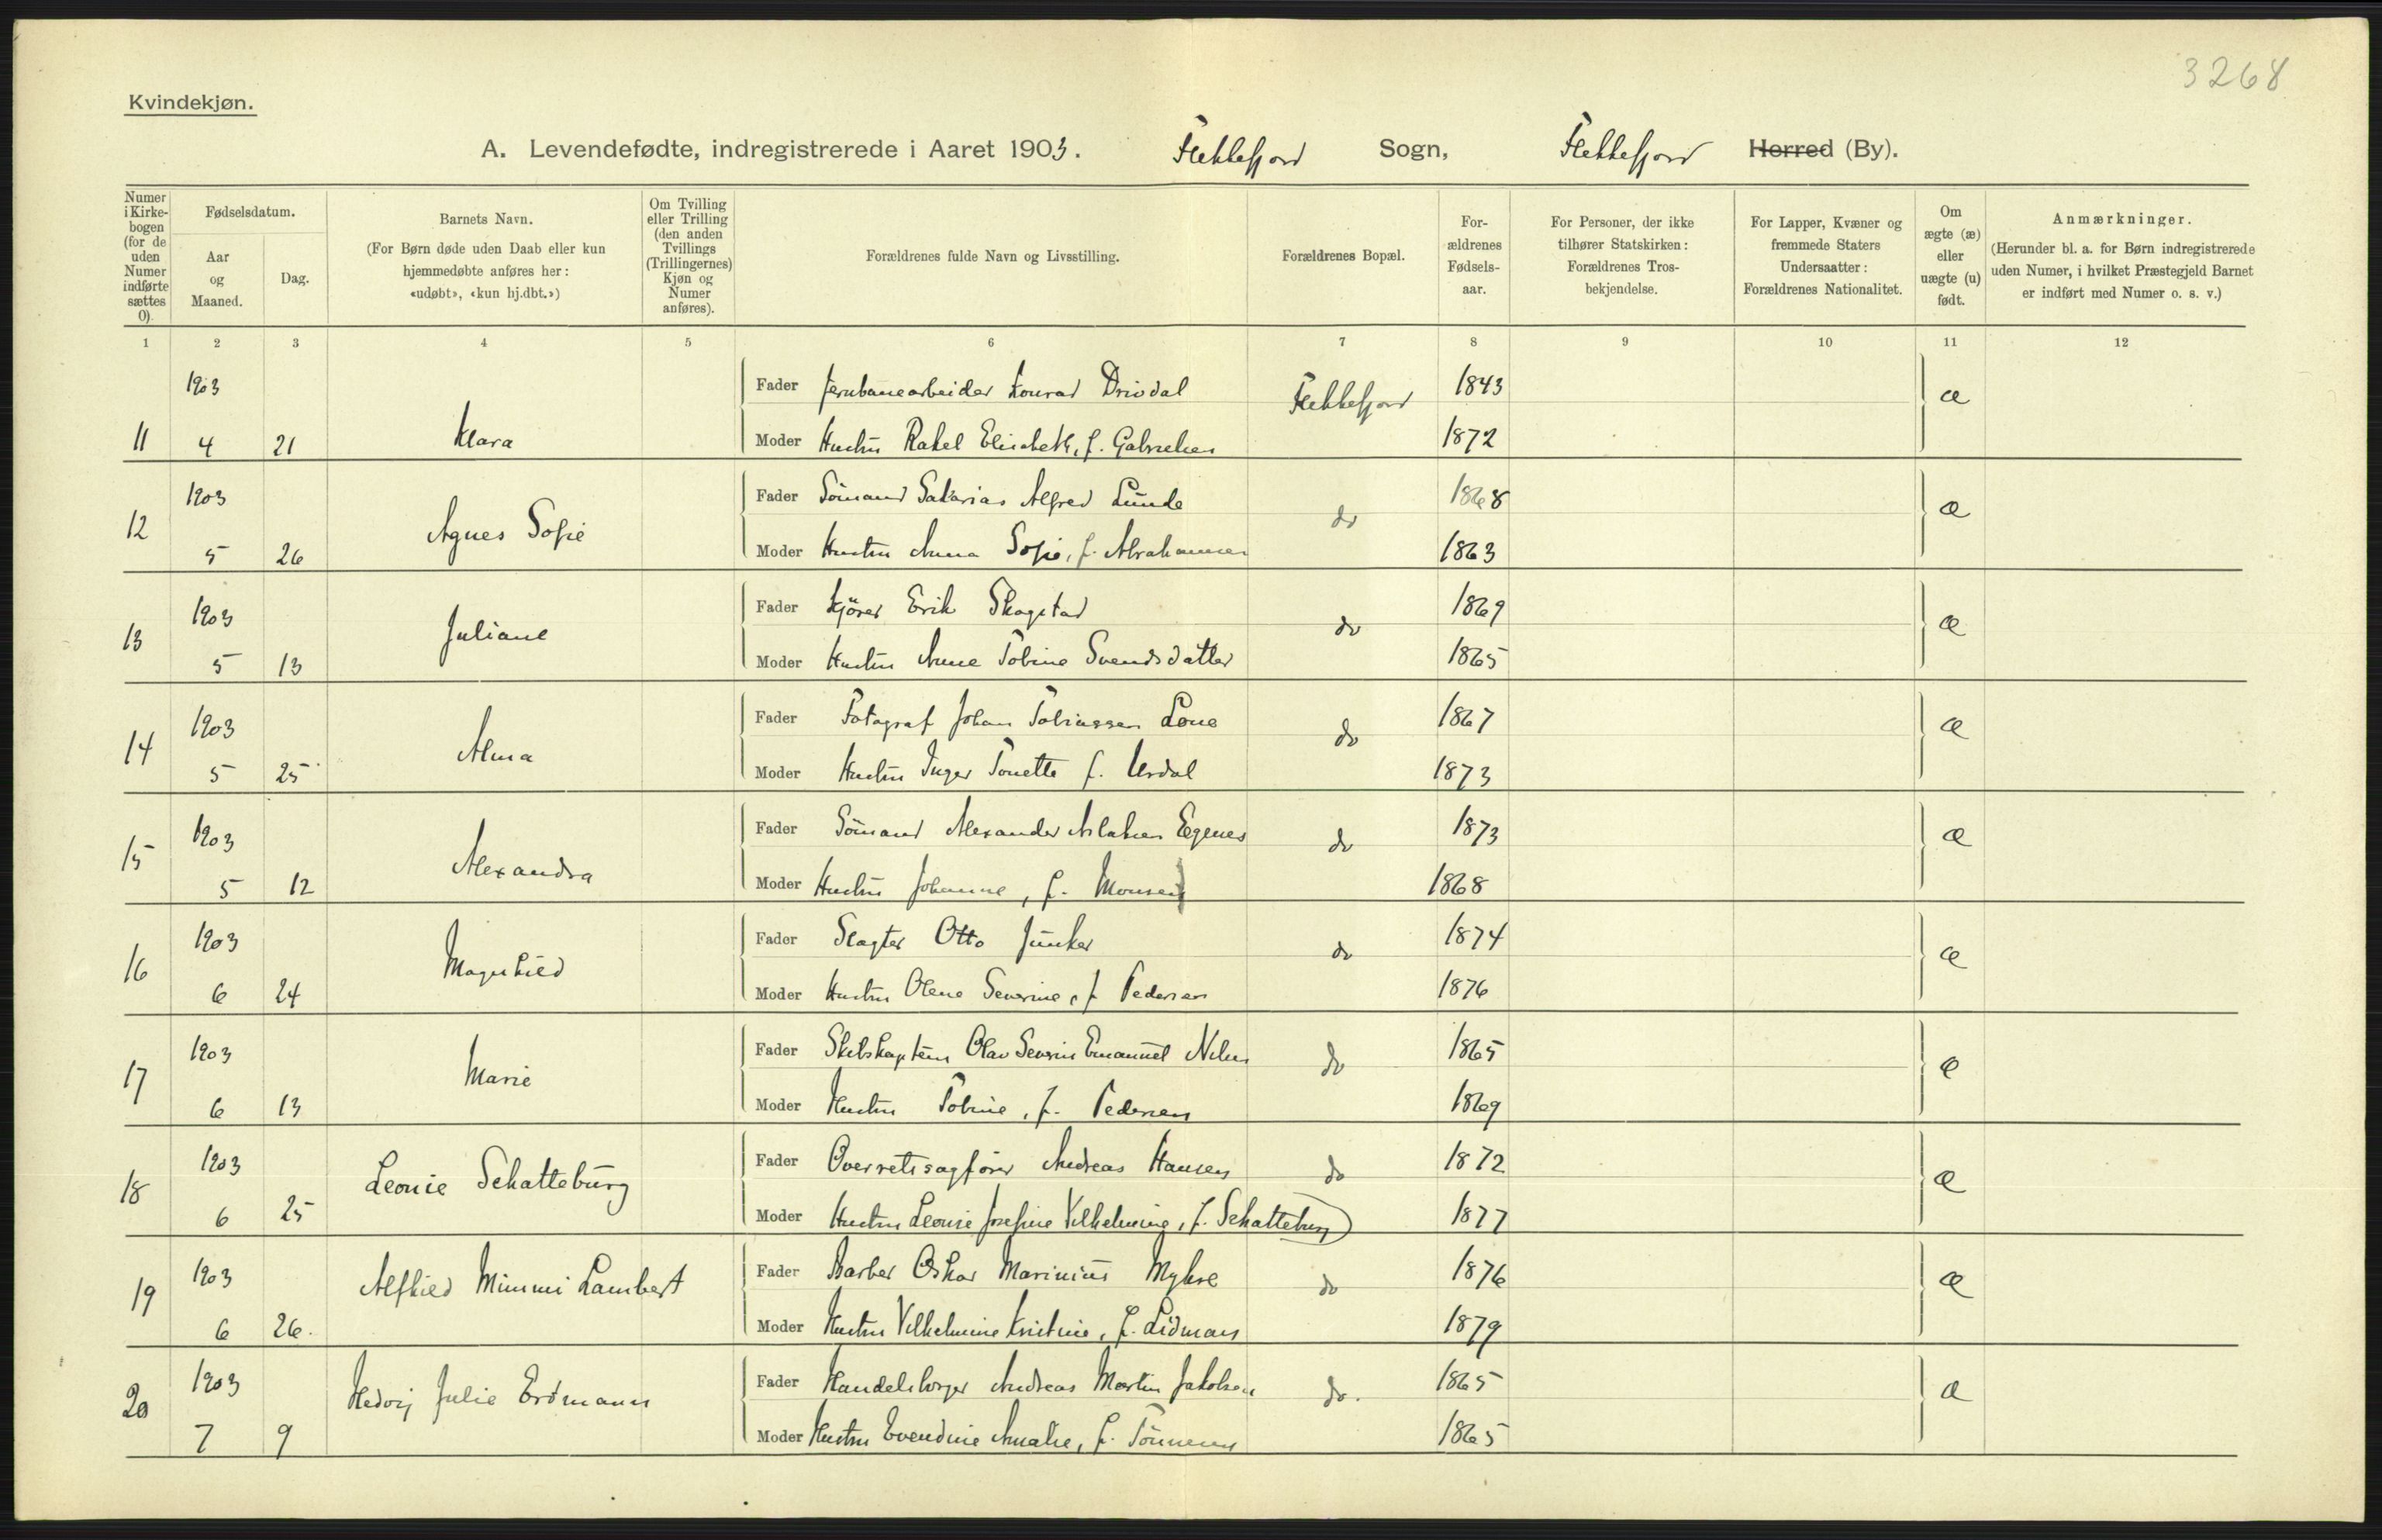 3268
Kvindekjøn.
A. Levendefødte, indregistrerede i Aaret 1903. Flekkefjord Sogn, Flekkefjord Herred (By).
Numer i Kirkebogen (for de uden Numer indførte sættes 0).
Fødselsdatum.
Aar og Maaned.
Dag.
Barnets Navn.
(For Børn døde uden Daab eller kun hjemmedøbte anføres her: «udøbt», «kun hj.dbt.»)
Om Tvilling eller Trilling (den anden Tvillings (Trillingernes) Kjøn og Numer anføres).
Forældrenes fulde Navn og Livsstilling.
Forældrenes Bopæl.
For-ældrenes Fødsels-aar.
For Personer, der ikke tilhører Statskirken: Forældrenes Tros-bekjendelse.
For Lapper, Kvæner og fremmede Staters Undersaatter: Forældrenes Nationalitet.
Om ægte (æ) eller uægte (u) født.
Anmærkninger.
(Herunder bl. a. for Børn indregistrerede uden Numer, i hvilket Præstegjeld Barnet er indført med Numer o. s. v.)
1 2 3 4 5 6 7 8 9 10 11 12
1903 Fader Jernbanearbeider Konrad Drivdal Flekkefjord 1843 æ
11 4 21 Klara Moder Hustru Rakel Elisabeth, f. Gabrielsen 1872
1903 Fader Sömand Sakarias Alfred Lunde do 1868 æ
12 5 26 Agnes Sofie Moder Hustru Anna Sofie, f. Abrahamsen 1863
1903 Fader Kjörer Erik Skogstad do 1869 æ
13 5 13 Juliane Moder Hustru Anne Tobine Svendsdatter 1865
1903 Fader Fotograf Johan Tobiassen Lone do 1867 æ
14 5 25 Alma Moder Hustru Inger Tonette f. Urdal 1873
1903 Fader Sömand Alexander Aslaksen Egenes do 1873 æ
15 5 12 Alexandra Moder Hustru Johanne, f. Monsen 1868
1903 Fader Slagter Otto Junker do 1874 æ
16 6 24 Magnhild Moder Hustru Olene Severine, f. Pedersen 1876
1903 Fader Skibskaptein Olav Severin Emanuel Nilsen do 1865 æ
17 6 13 Marie Moder Hustru Tobine, f. Pedersen 1869
1903 Fader Overretssagförer Andreas Hansen do 1872 æ
18 6 25 Leonie Schatteburg Moder Hustru Leonie Josefine Vilhelmine, f. Schatteburg 1877
1903 Fader Barber Oskar Marinius Myhre do 1876 æ
19 6 26. Alfhild Mimmi Lambert Moder Hustru Vilhelmine Kristine, f. Lidman 1879
1903 Fader Handelsborger Andreas Martin Jakobsen do. 1865 æ
20 7 9 Hedvig Julie Erdmann Moder Hustru Evendine Amalie, f. Tönnesen 1865